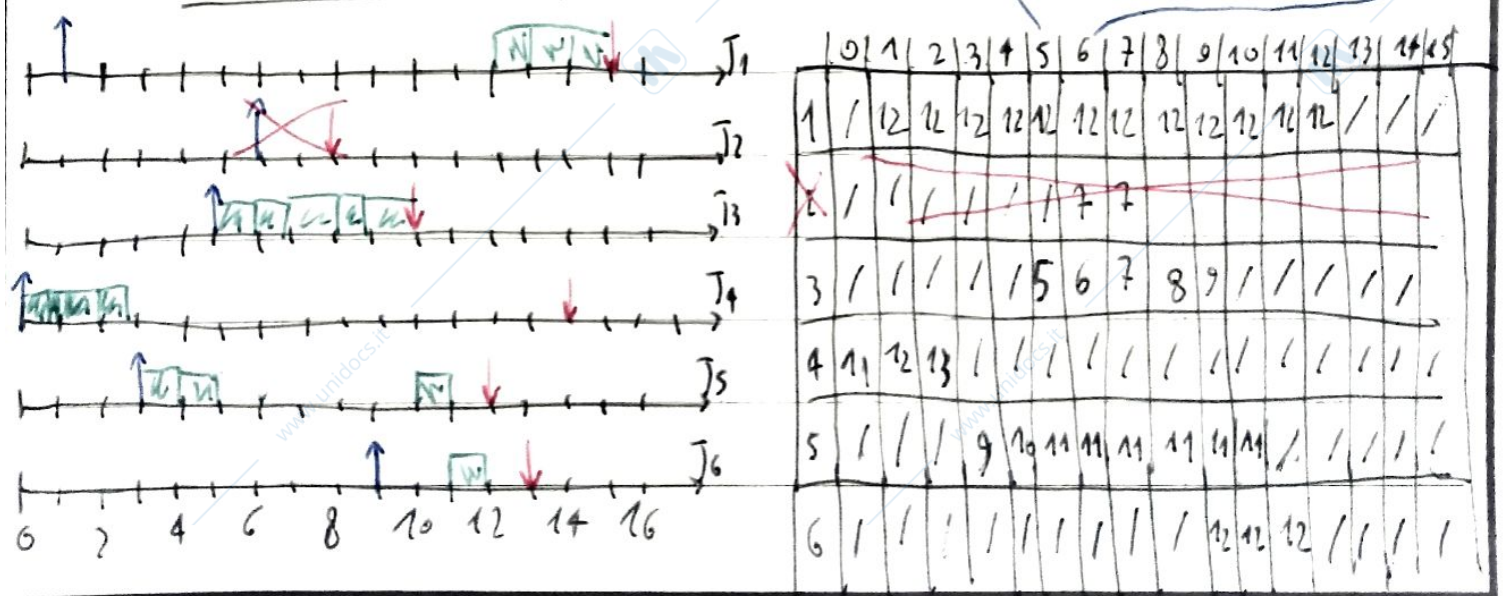 J1
J2
J3
J4
J5
J6
0 2 4 6 8 10 12 14 16
0 1 2 3 4 5 6 7 8 9 10 11 12 13 14 15
1 / 12 12 12 12 12 12 12 12 12 12 12 12 / / /
/ / / / / / 7 7
3 / / / / / 5 6 7 8 9 / / / / /
4 11 12 13 / / / / / / / / / / / / /
5 / / / 9 10 11 11 11 11 11 11 / / / / /
6 / / / / / / / / / 12 12 12 / / / /
www.unidocs.it
www.unidocs.it